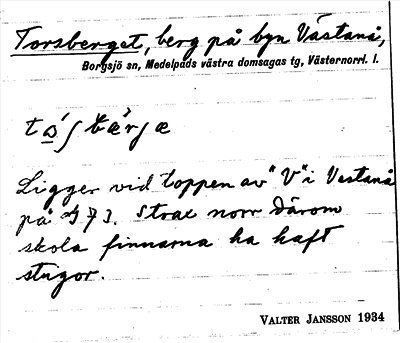 Torsberget, berg på byn Västanå,
Borgsjö sn, Medelpads västra domsagas tg, Västernorrl. l.
Ligger vid toppen av "V" i Vestanå
på Strax norr därom
skola finnarna ha haft
stugor.
VALTER JANSSON 1934